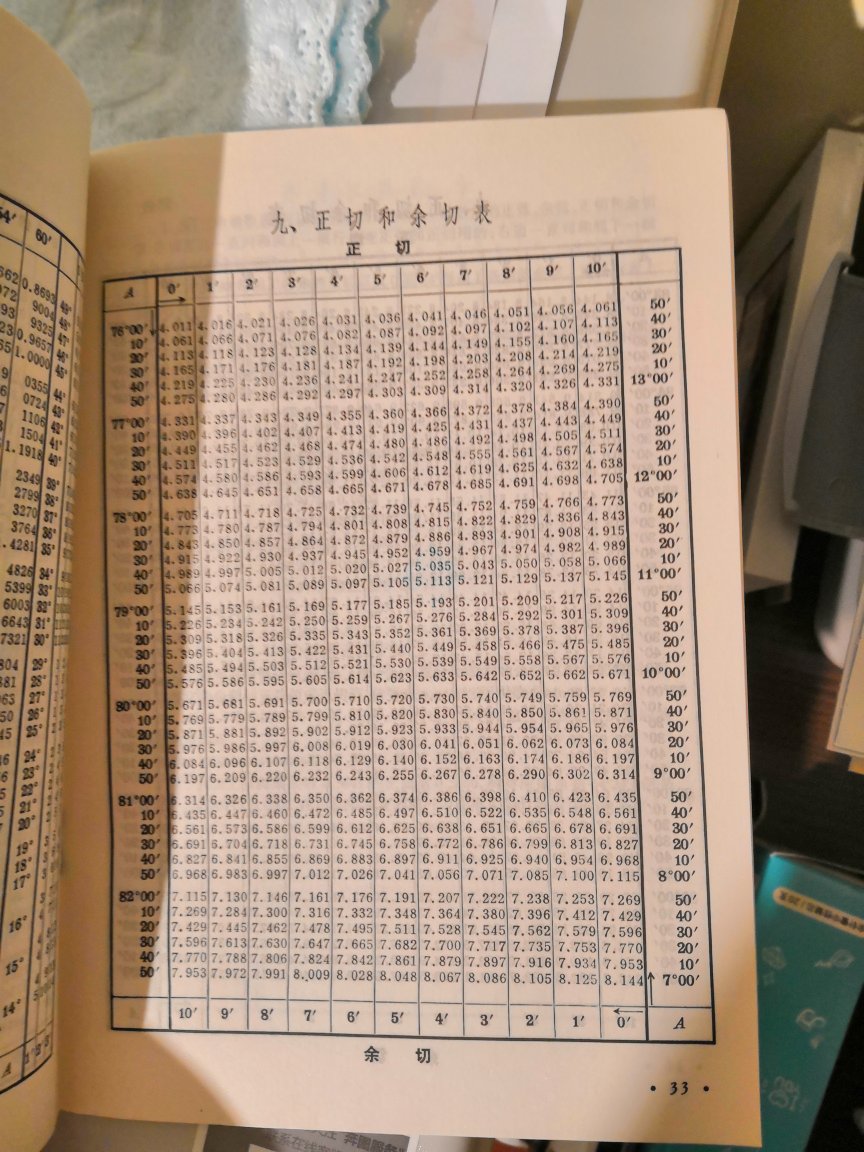 60'
0.8693 49°
9004 48°
9325 47°
0.9657 46°
1.0000 45°
0355 44°
0724 43°
1106 42°
1504 41°
1.1918 40°
2349 39°
2799 38°
3270 37°
3764 36°
.4281 35°
4826 34°
5399 33°
6003 32°
6643 31°
7321 30°
29°
28°
27°
26°
25°
24°
23°
22°
21°
20°
19°
18°
17°
16°
15°
14°
A
九、正切和余切表
正 切
A 0' 1' 2' 3' 4' 5' 6' 7' 8' 9' 10'
76°00' 4.011 4.016 4.021 4.026 4.031 4.036 4.041 4.046 4.051 4.056 4.061 50'
10' 4.061 4.066 4.071 4.076 4.082 4.087 4.092 4.097 4.102 4.107 4.113 40'
20' 4.113 4.118 4.123 4.128 4.134 4.139 4.144 4.149 4.155 4.160 4.165 30'
30' 4.165 4.171 4.176 4.181 4.187 4.192 4.198 4.203 4.208 4.214 4.219 20'
40' 4.219 4.225 4.230 4.236 4.241 4.247 4.252 4.258 4.264 4.269 4.275 10'
50' 4.275 4.280 4.286 4.292 4.297 4.303 4.309 4.314 4.320 4.326 4.331 13°00'
77°00' 4.331 4.337 4.343 4.349 4.355 4.360 4.366 4.372 4.378 4.384 4.390 50'
10' 4.390 4.396 4.402 4.407 4.413 4.419 4.425 4.431 4.437 4.443 4.449 40'
20' 4.449 4.455 4.462 4.468 4.474 4.480 4.486 4.492 4.498 4.505 4.511 30'
30' 4.511 4.517 4.523 4.529 4.536 4.542 4.548 4.555 4.561 4.567 4.574 20'
40' 4.574 4.580 4.586 4.593 4.599 4.606 4.612 4.619 4.625 4.632 4.638 10'
50' 4.638 4.645 4.651 4.658 4.665 4.671 4.678 4.685 4.691 4.698 4.705 12°00'
78°00' 4.705 4.711 4.718 4.725 4.732 4.739 4.745 4.752 4.759 4.766 4.773 50'
10' 4.773 4.780 4.787 4.794 4.801 4.808 4.815 4.822 4.829 4.836 4.843 40'
20' 4.843 4.850 4.857 4.864 4.872 4.879 4.886 4.893 4.901 4.908 4.915 30'
30' 4.915 4.922 4.930 4.937 4.945 4.952 4.959 4.967 4.974 4.982 4.989 20'
40' 4.989 4.997 5.005 5.012 5.020 5.027 5.035 5.043 5.050 5.058 5.066 10'
50' 5.066 5.074 5.081 5.089 5.097 5.105 5.113 5.121 5.129 5.137 5.145 11°00'
79°00' 5.145 5.153 5.161 5.169 5.177 5.185 5.193 5.201 5.209 5.217 5.226 50'
10' 5.226 5.234 5.242 5.250 5.259 5.267 5.276 5.284 5.292 5.301 5.309 40'
20' 5.309 5.318 5.326 5.335 5.343 5.352 5.361 5.369 5.378 5.387 5.396 30'
30' 5.396 5.404 5.413 5.422 5.431 5.440 5.449 5.458 5.466 5.475 5.485 20'
40' 5.485 5.494 5.503 5.512 5.521 5.530 5.539 5.549 5.558 5.567 5.576 10'
50' 5.576 5.586 5.595 5.605 5.614 5.623 5.633 5.642 5.652 5.662 5.671 10°00'
80°00' 5.671 5.681 5.691 5.700 5.710 5.720 5.730 5.740 5.749 5.759 5.769 50'
10' 5.769 5.779 5.789 5.799 5.810 5.820 5.830 5.840 5.850 5.861 5.871 40'
20' 5.871 5.881 5.892 5.902 5.912 5.923 5.933 5.944 5.954 5.965 5.976 30'
30' 5.976 5.986 5.997 6.008 6.019 6.030 6.041 6.051 6.062 6.073 6.084 20'
40' 6.084 6.096 6.107 6.118 6.129 6.140 6.152 6.163 6.174 6.186 6.197 10'
50' 6.197 6.209 6.220 6.232 6.243 6.255 6.267 6.278 6.290 6.302 6.314 9°00'
81°00' 6.314 6.326 6.338 6.350 6.362 6.374 6.386 6.398 6.410 6.423 6.435 50'
10' 6.435 6.447 6.460 6.472 6.485 6.497 6.510 6.522 6.535 6.548 6.561 40'
20' 6.561 6.573 6.586 6.599 6.612 6.625 6.638 6.651 6.665 6.678 6.691 30'
30' 6.691 6.704 6.718 6.731 6.745 6.758 6.772 6.786 6.799 6.813 6.827 20'
40' 6.827 6.841 6.855 6.869 6.883 6.897 6.911 6.925 6.940 6.954 6.968 10'
50' 6.968 6.983 6.997 7.012 7.026 7.041 7.056 7.071 7.085 7.100 7.115 8°00'
82°00' 7.115 7.130 7.146 7.161 7.176 7.191 7.207 7.222 7.238 7.253 7.269 50'
10' 7.269 7.284 7.300 7.316 7.332 7.348 7.364 7.380 7.396 7.412 7.429 40'
20' 7.429 7.445 7.462 7.478 7.495 7.511 7.528 7.545 7.562 7.579 7.596 30'
30' 7.596 7.613 7.630 7.647 7.665 7.682 7.700 7.717 7.735 7.753 7.770 20'
40' 7.770 7.788 7.806 7.824 7.842 7.861 7.879 7.897 7.916 7.934 7.953 10'
50' 7.953 7.972 7.991 8.009 8.028 8.048 8.067 8.086 8.105 8.125 8.144 7°00'
10' 9' 8' 7' 6' 5' 4' 3' 2' 1' 0' A
余 切
• 33 •